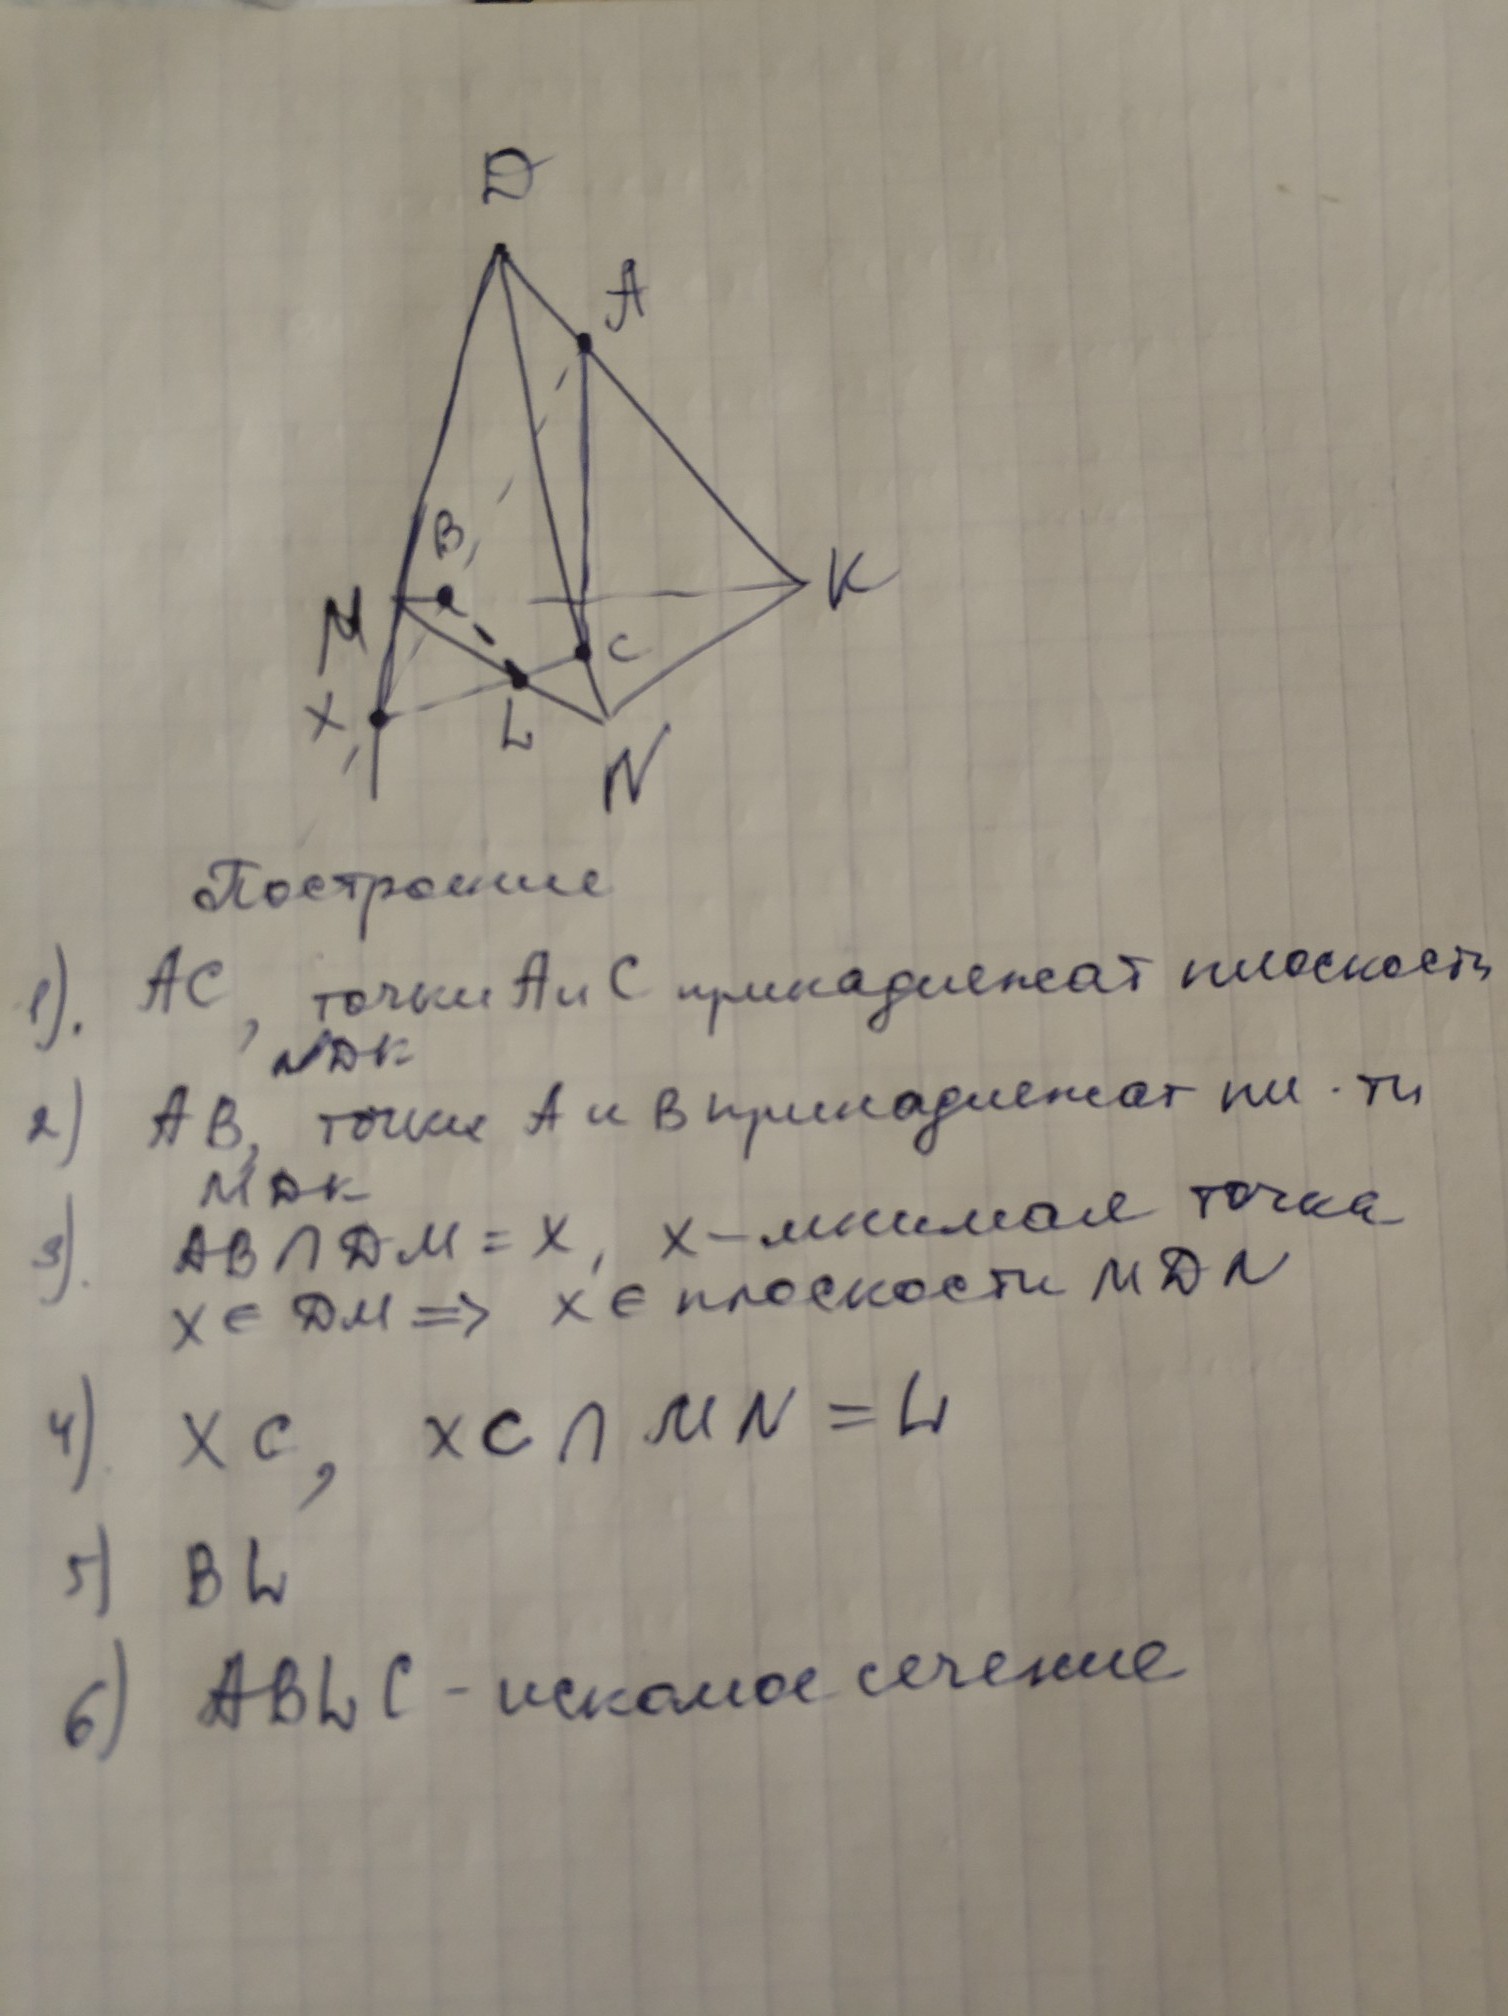 D
A
B
M
K
C
X
L
N
Построение
1). AC, точки A и C принадлежат плоскости
NDK
2) AB, точки A и B принадлежат пл-ти
MDK
3). AB ∩ DM = X, X – мнимая точка
X ∈ DM => X ∈ плоскости MDN
4) XC, XC ∩ MN = L
5) BL
6) ABLC - искомое сечение